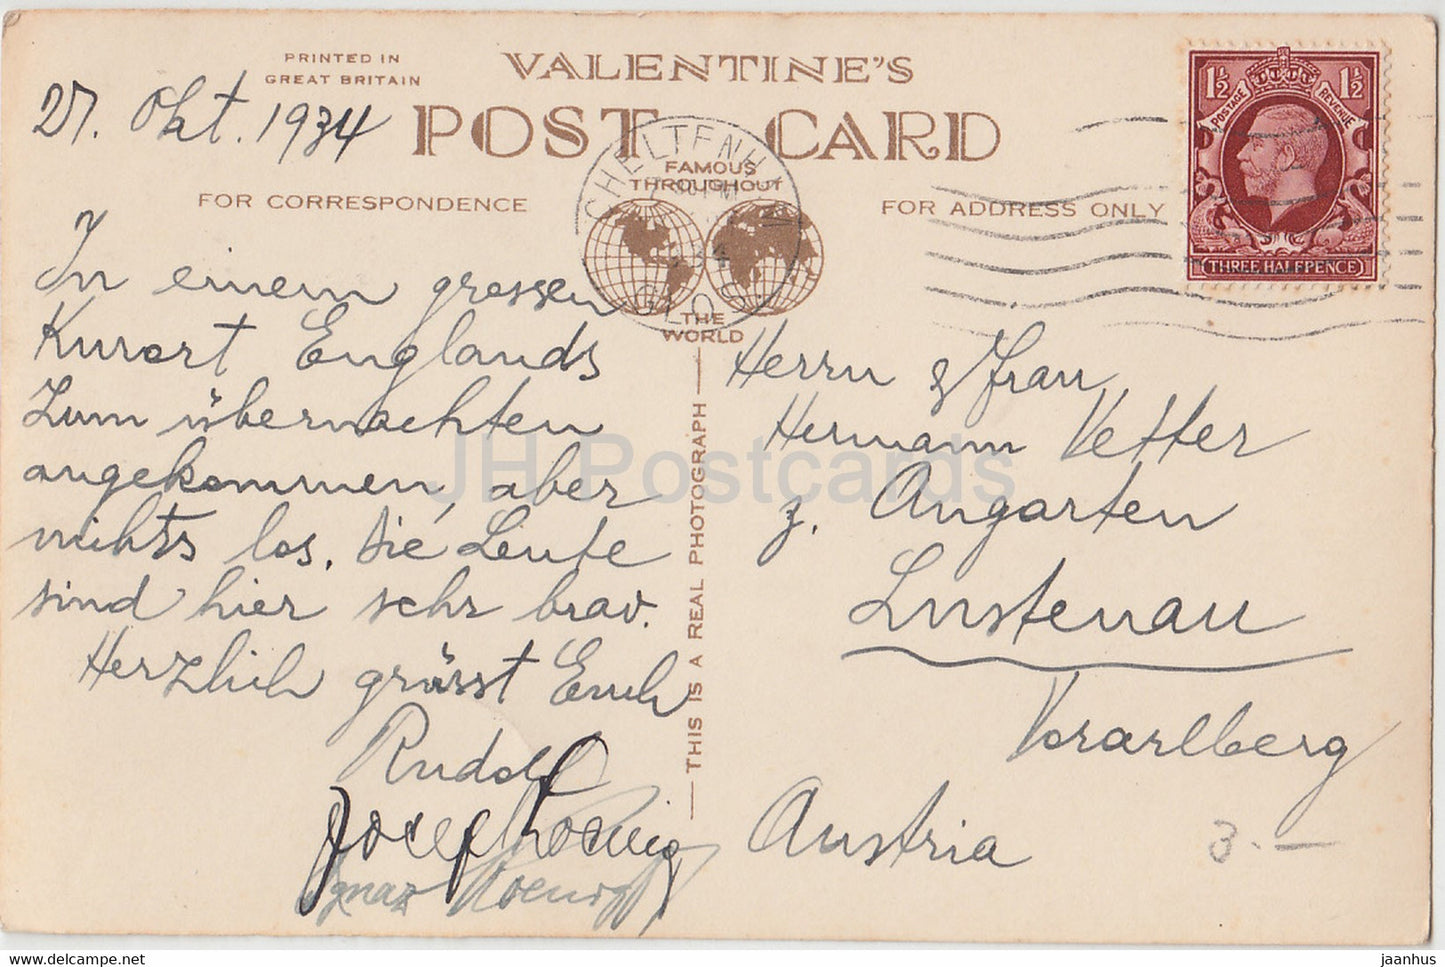 PRINTED IN
GREAT BRITAIN
VALENTINE'S
POST CARD
FAMOUS
THROUGHOUT
THE
WORLD
FOR CORRESPONDENCE
FOR ADDRESS ONLY
THIS IS A REAL PHOTOGRAPH
1½ 1½
POSTAGE REVENUE
THREE HALFPENCE
CHELTENHAM
GLOS
27. Okt. 1934
In einem grossen
Kurort Englands
Zum übernachten
angekommen, aber
nichts los. Die Leute
sind hier sehr brav.
Herzlich grüsst Euch
Rudolf
Josef Koenig
Ignaz Koenig
Herrn & Frau
Hermann Vetter
z. Augarten
Lustenau
Vorarlberg
Austria
3.—
JH Postcards
www.delcampe.net
jaanhus